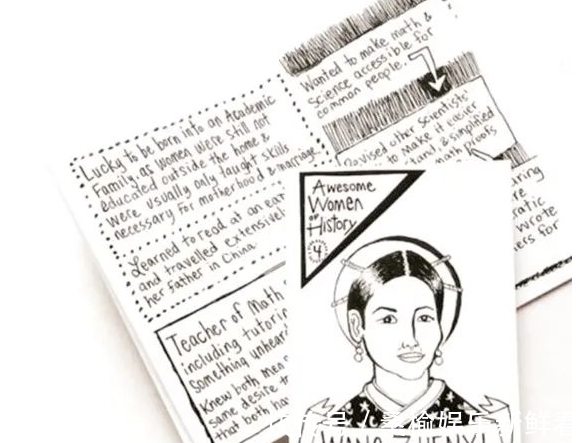 Lucky to be born into an Academic
Family, as women were still not
educated outside the home &
were usually only taught skills
necessary for motherhood & marriage.
Learned to read at an ear
and travelled extensivel
her father in China.
Teacher of Math
including tutorin
Something unheard
Knew both men
same desire t
that both ha
Wanted to make math &
Science accessible for
common people.
Revised other scientists'
to make it easier
& simplified
math proofs
uring
re
ratic
wrote
ers for
Awesome
Women
of
History
4
WANG ZHENYI